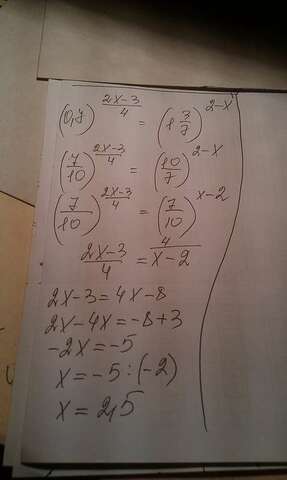 (0,7)^((2x-3)/4) = (1 3/7)^(2-x)
(7/10)^((2x-3)/4) = (10/7)^(2-x)
(7/10)^((2x-3)/4) = (7/10)^(x-2)
(2x-3)/4 = 4/(x-2)
2x-3=4x-8
2x-4x=-8+3
-2x=-5
x=-5:(-2)
x=2,5